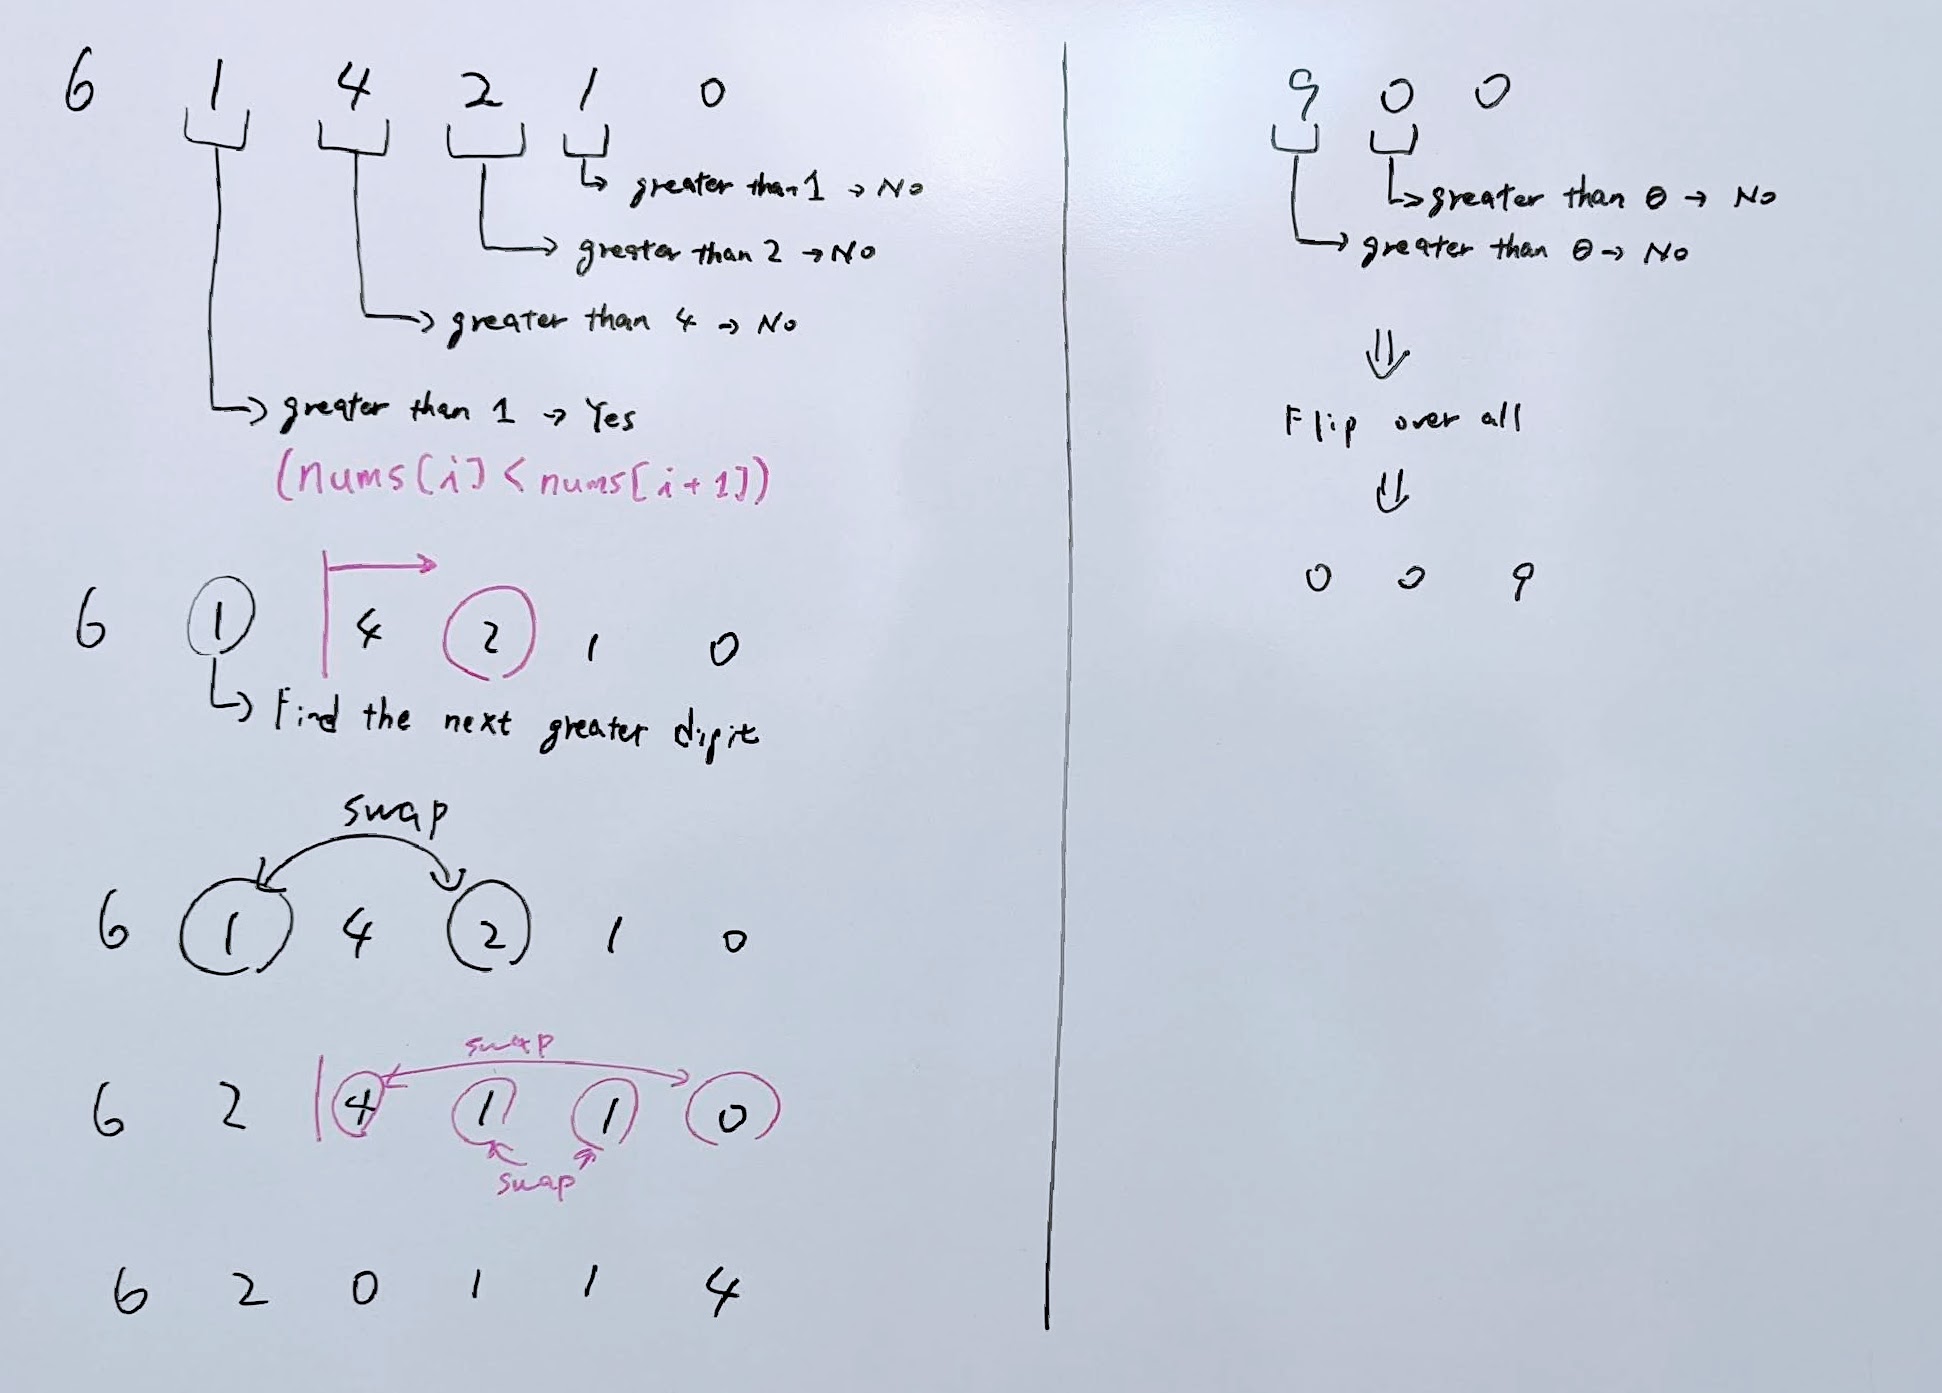 6 1 4 2 1 0
greater than 1 → No
greater than 2 → No
greater than 4 → No
greater than 1 → Yes
(nums[i] < nums[i+1])
6 1 4 2 1 0
Find the next greater digit
swap
6 1 4 2 1 0
swap
6 2 4 1 1 0
swap
6 2 0 1 1 4
9 0 0
greater than 0 → No
greater than 0 → No
⇓
Flip over all
⇓
0 0 9